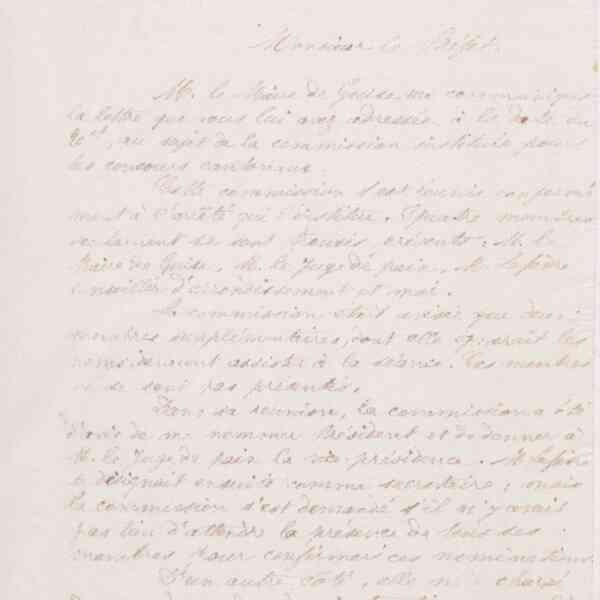 Monsieur le Préfet,
M. le Maire de Guise me communique
la lettre que vous lui avez adressée à la date du
20 ct, au sujet de la commission instituée pour
les concours cantonaux.
Cette commission s'est réunie conformé
ment à l'arrêté qui l'institue. Quatre membres
seulement se sont trouvés présents : M. le
Maire de Guise, M. le Juge de paix, M. Lefèvre
conseiller d'arrondissement et moi.
La commission était avisée que deux
membres supplémentaires, dont elle ignorait les
noms devaient assister à la séance. Ces membres
ne se sont pas présentés.
Dans sa réunion, la commission a été
d'avis de me nommer Président et de donner à
M. le Juge de paix la vice présidence. M. Lefèvre
désignait ensuite comme secrétaire ; mais
la commission s'est demandé s'il n'y avait
pas lieu d'attendre la présence de tous ses
membres pour confirmer ces nominations.
D'un autre côté, elle m'a chargé